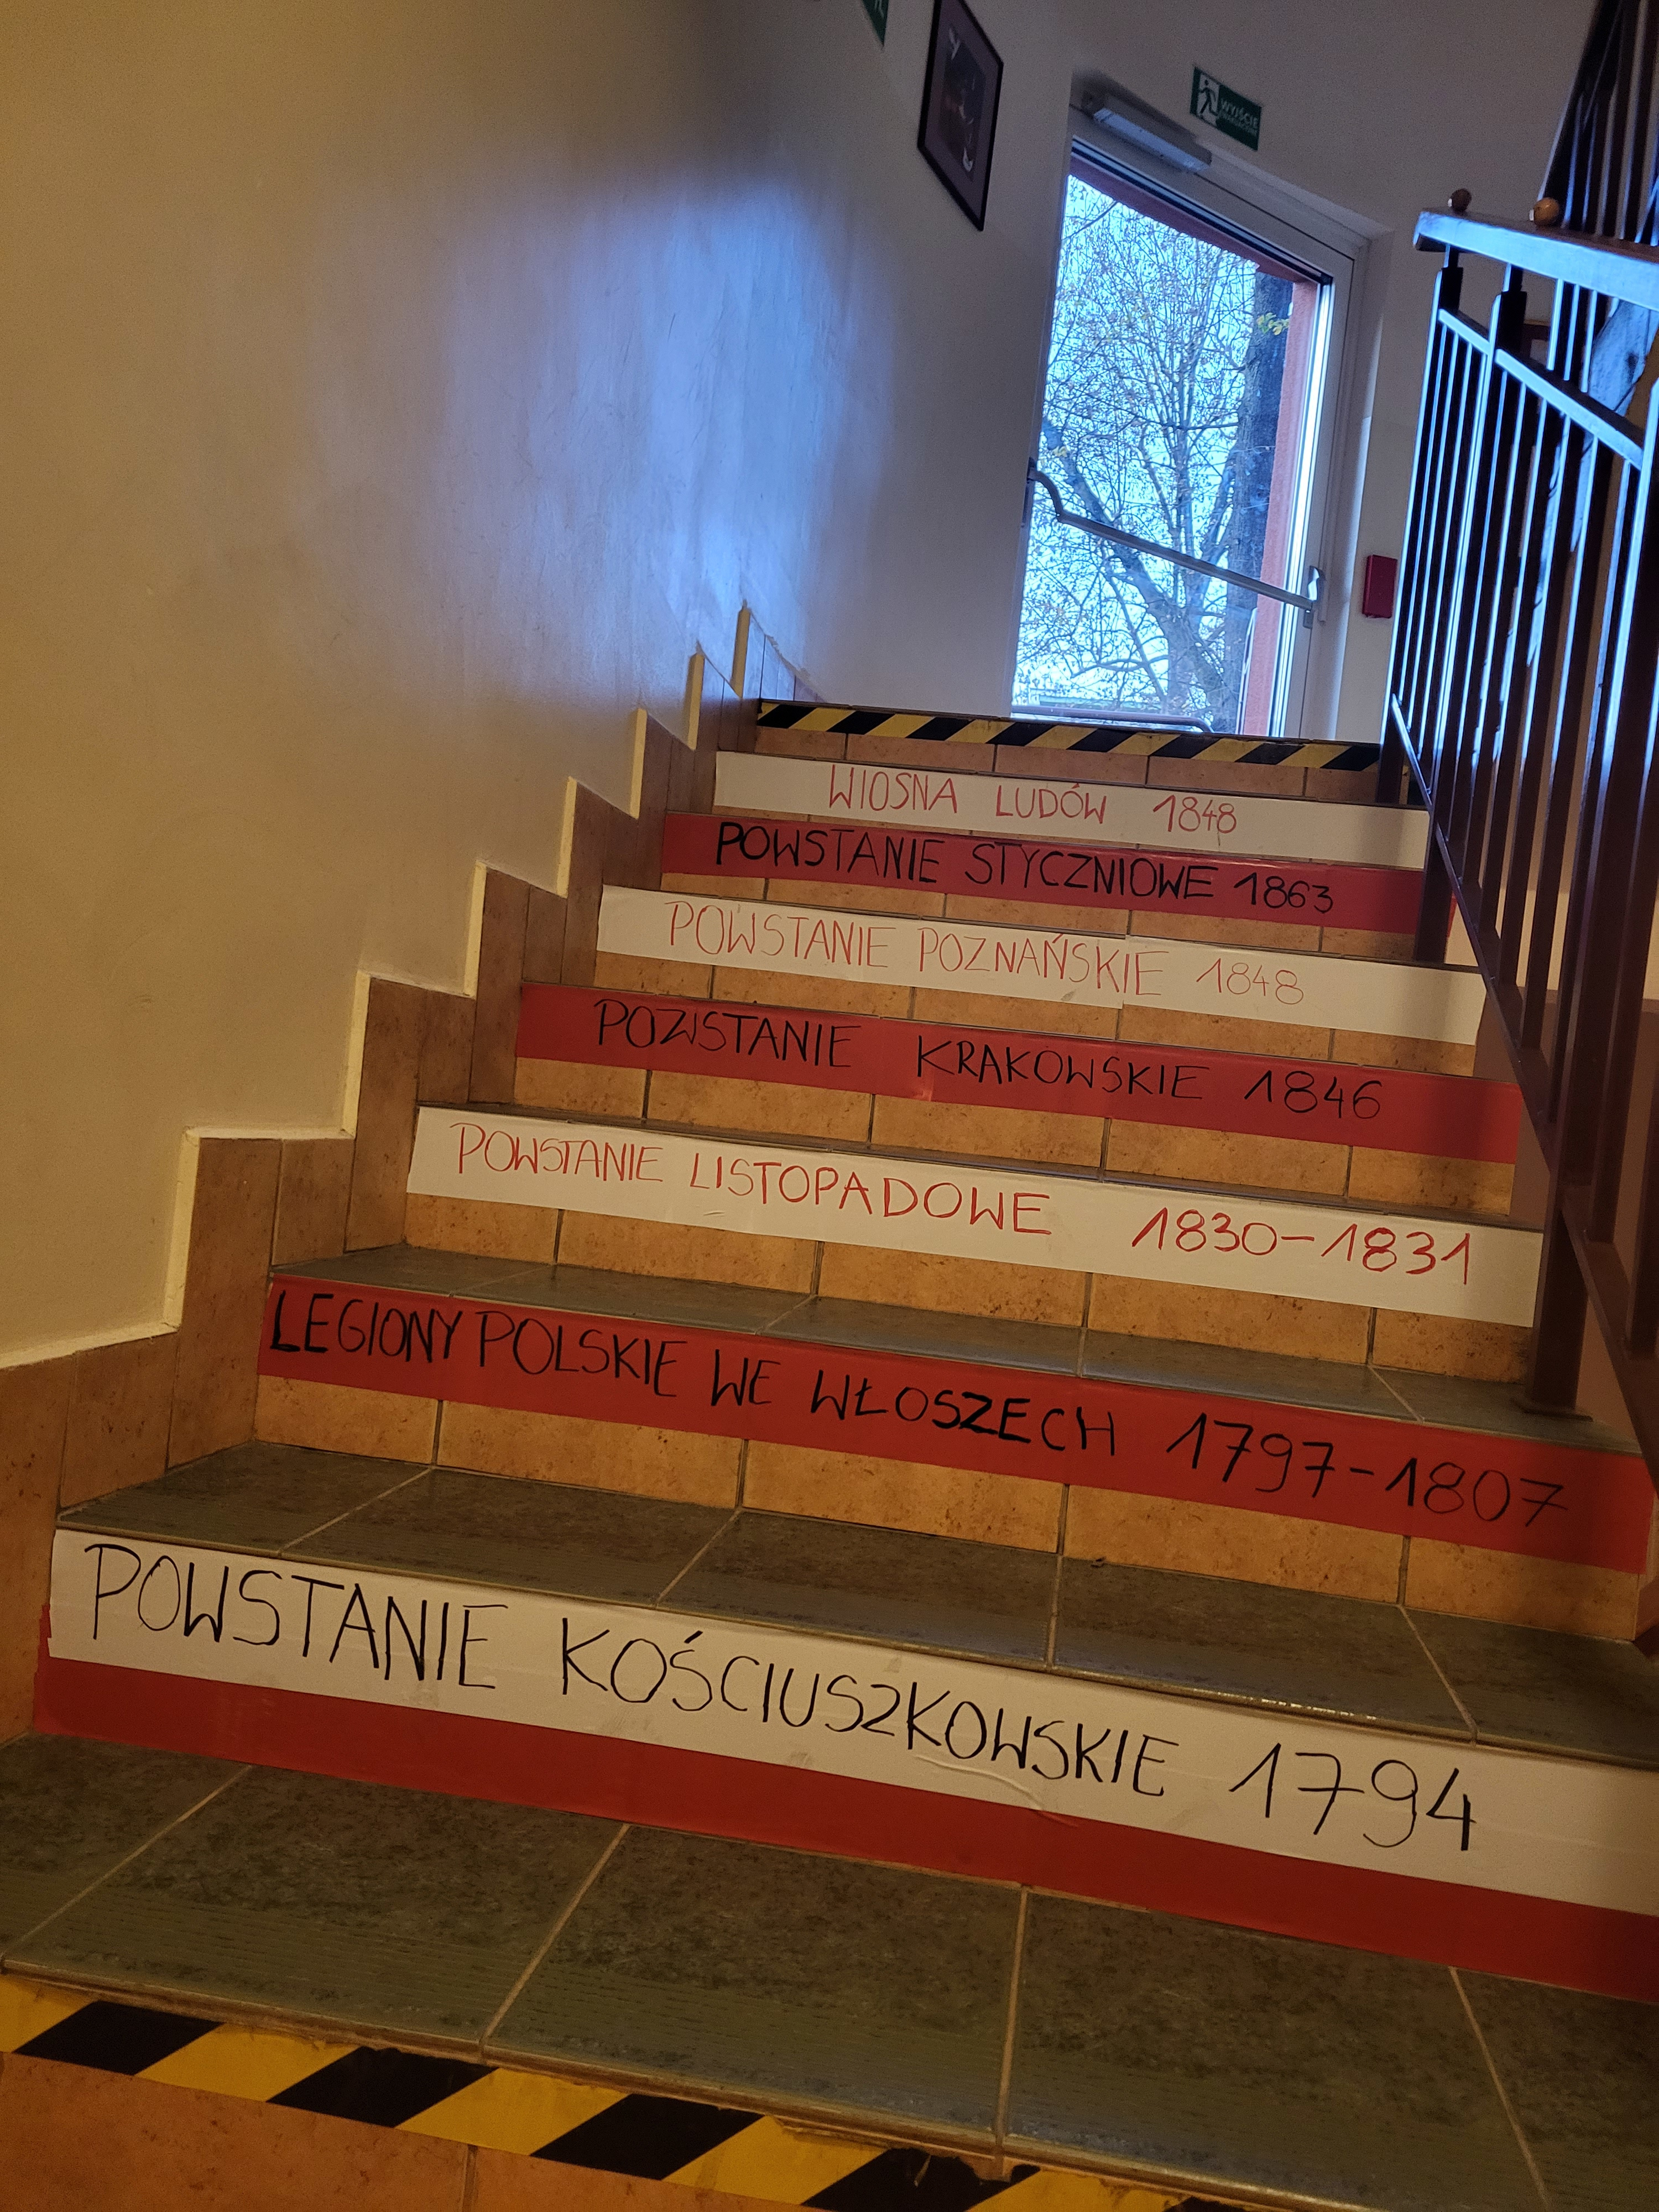 WYJŚCIE
EWAKUACYJNE
WIOSNA LUDÓW 1848
POWSTANIE STYCZNIOWE 1863
POWSTANIE POZNAŃSKIE 1848
POWSTANIE KRAKOWSKIE 1846
POWSTANIE LISTOPADOWE 1830-1831
LEGIONY POLSKIE WE WŁOSZECH 1797-1807
POWSTANIE KOŚCIUSZKOWSKIE 1794